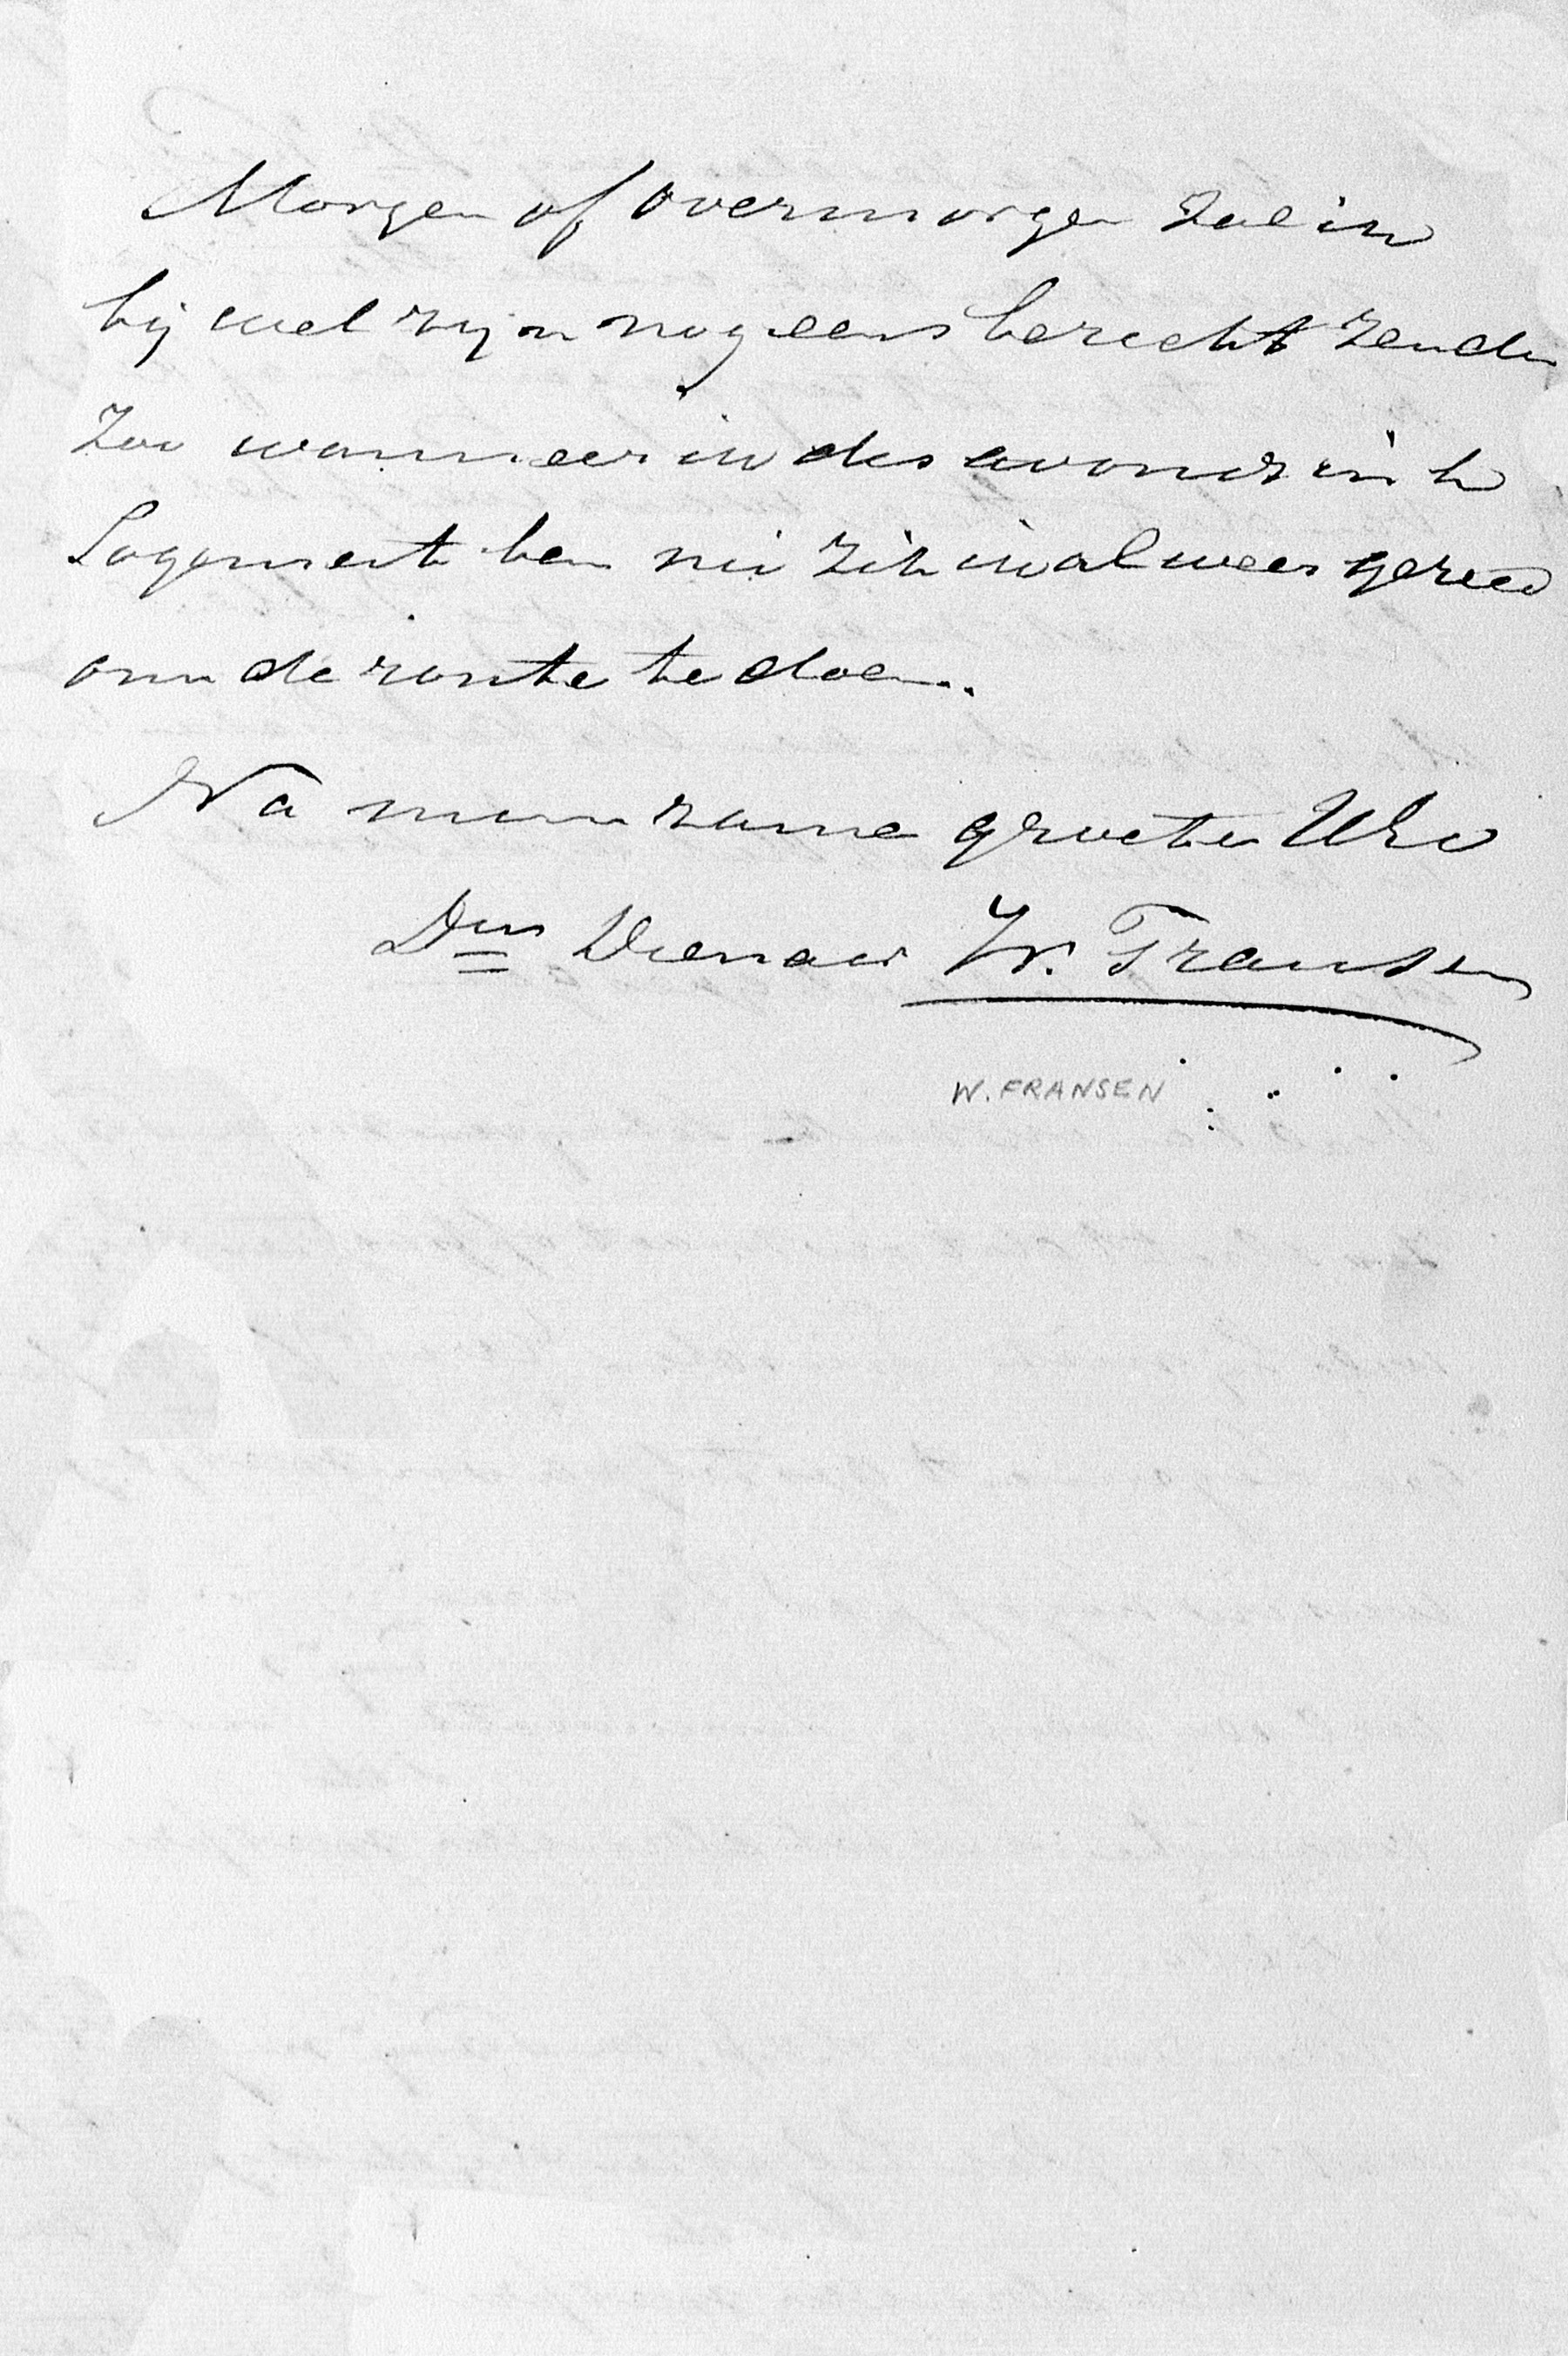 Morgen of overmorgen zal ik
bij wel zijn nog eens berecht zenden
Zoo wanneer ik des avonds in 't
Logement ben zit ik al weer gereed
om de route te doen.
Na minzame groete UEd
Dws Dienaar W. Fransen
W. FRANSEN